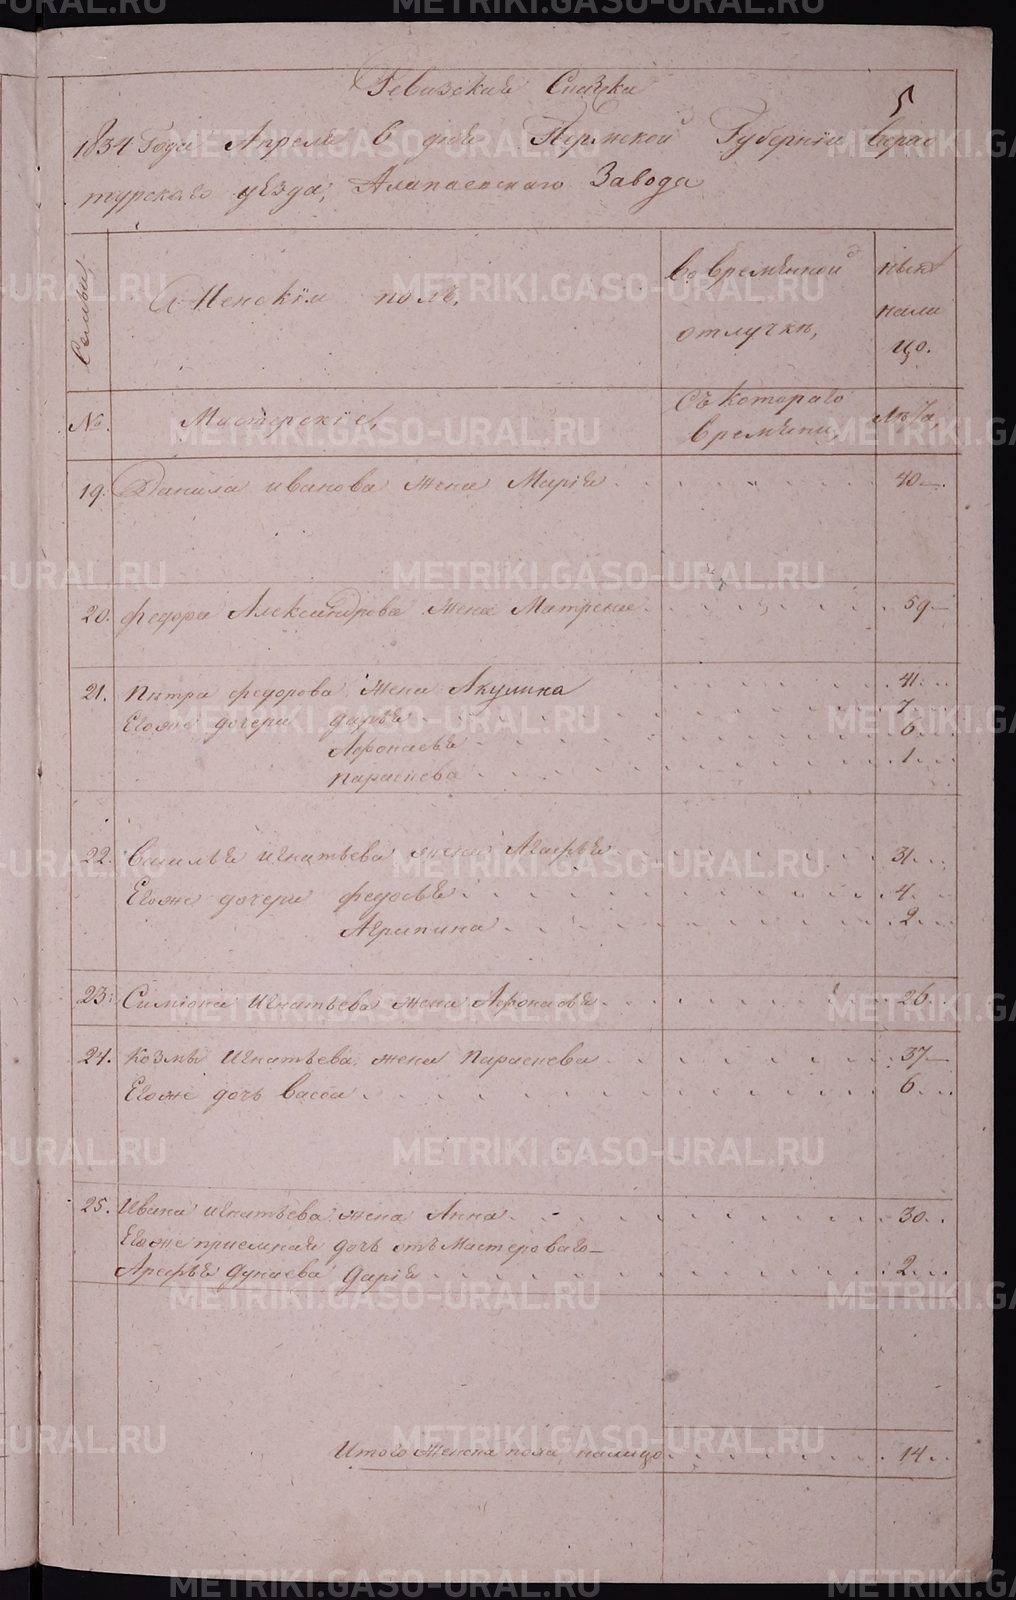 METRIKI.GASO-URAL.RU
Ревизская Сказка
5
1834 Года Апреля в дня Пермской Губернии верхо
турскаго уезда, Алапаевскаго Завода
Семьи,
Женский полъ,
Во временной
отлучкѣ,
ныне
нали
цо.
№
Мастерскiе,
Съ котораго
времени,
Лета,
19. Данила иванова жена Марiя 40
20. федора Александрова жена Матрена 59
21. Петра федорова жена Акулина 41
Егоже дочери дарья 7
Афонасья 6
параскева 1
22. Василья игнатьева жена Агафья 31
Егоже дочери федосья 4
Агрипина 2
23. Симiона Игнатьева жена Афонасья 26
24. Козмы Игнатьева жена Параскева 37
Егоже дочь васса 6
25. Ивана игнатьева жена Анна 30
Егоже приемная дочь отъ Мастероваго
Арефья дунаева дарiя 2
Итого женска пола налицо 14